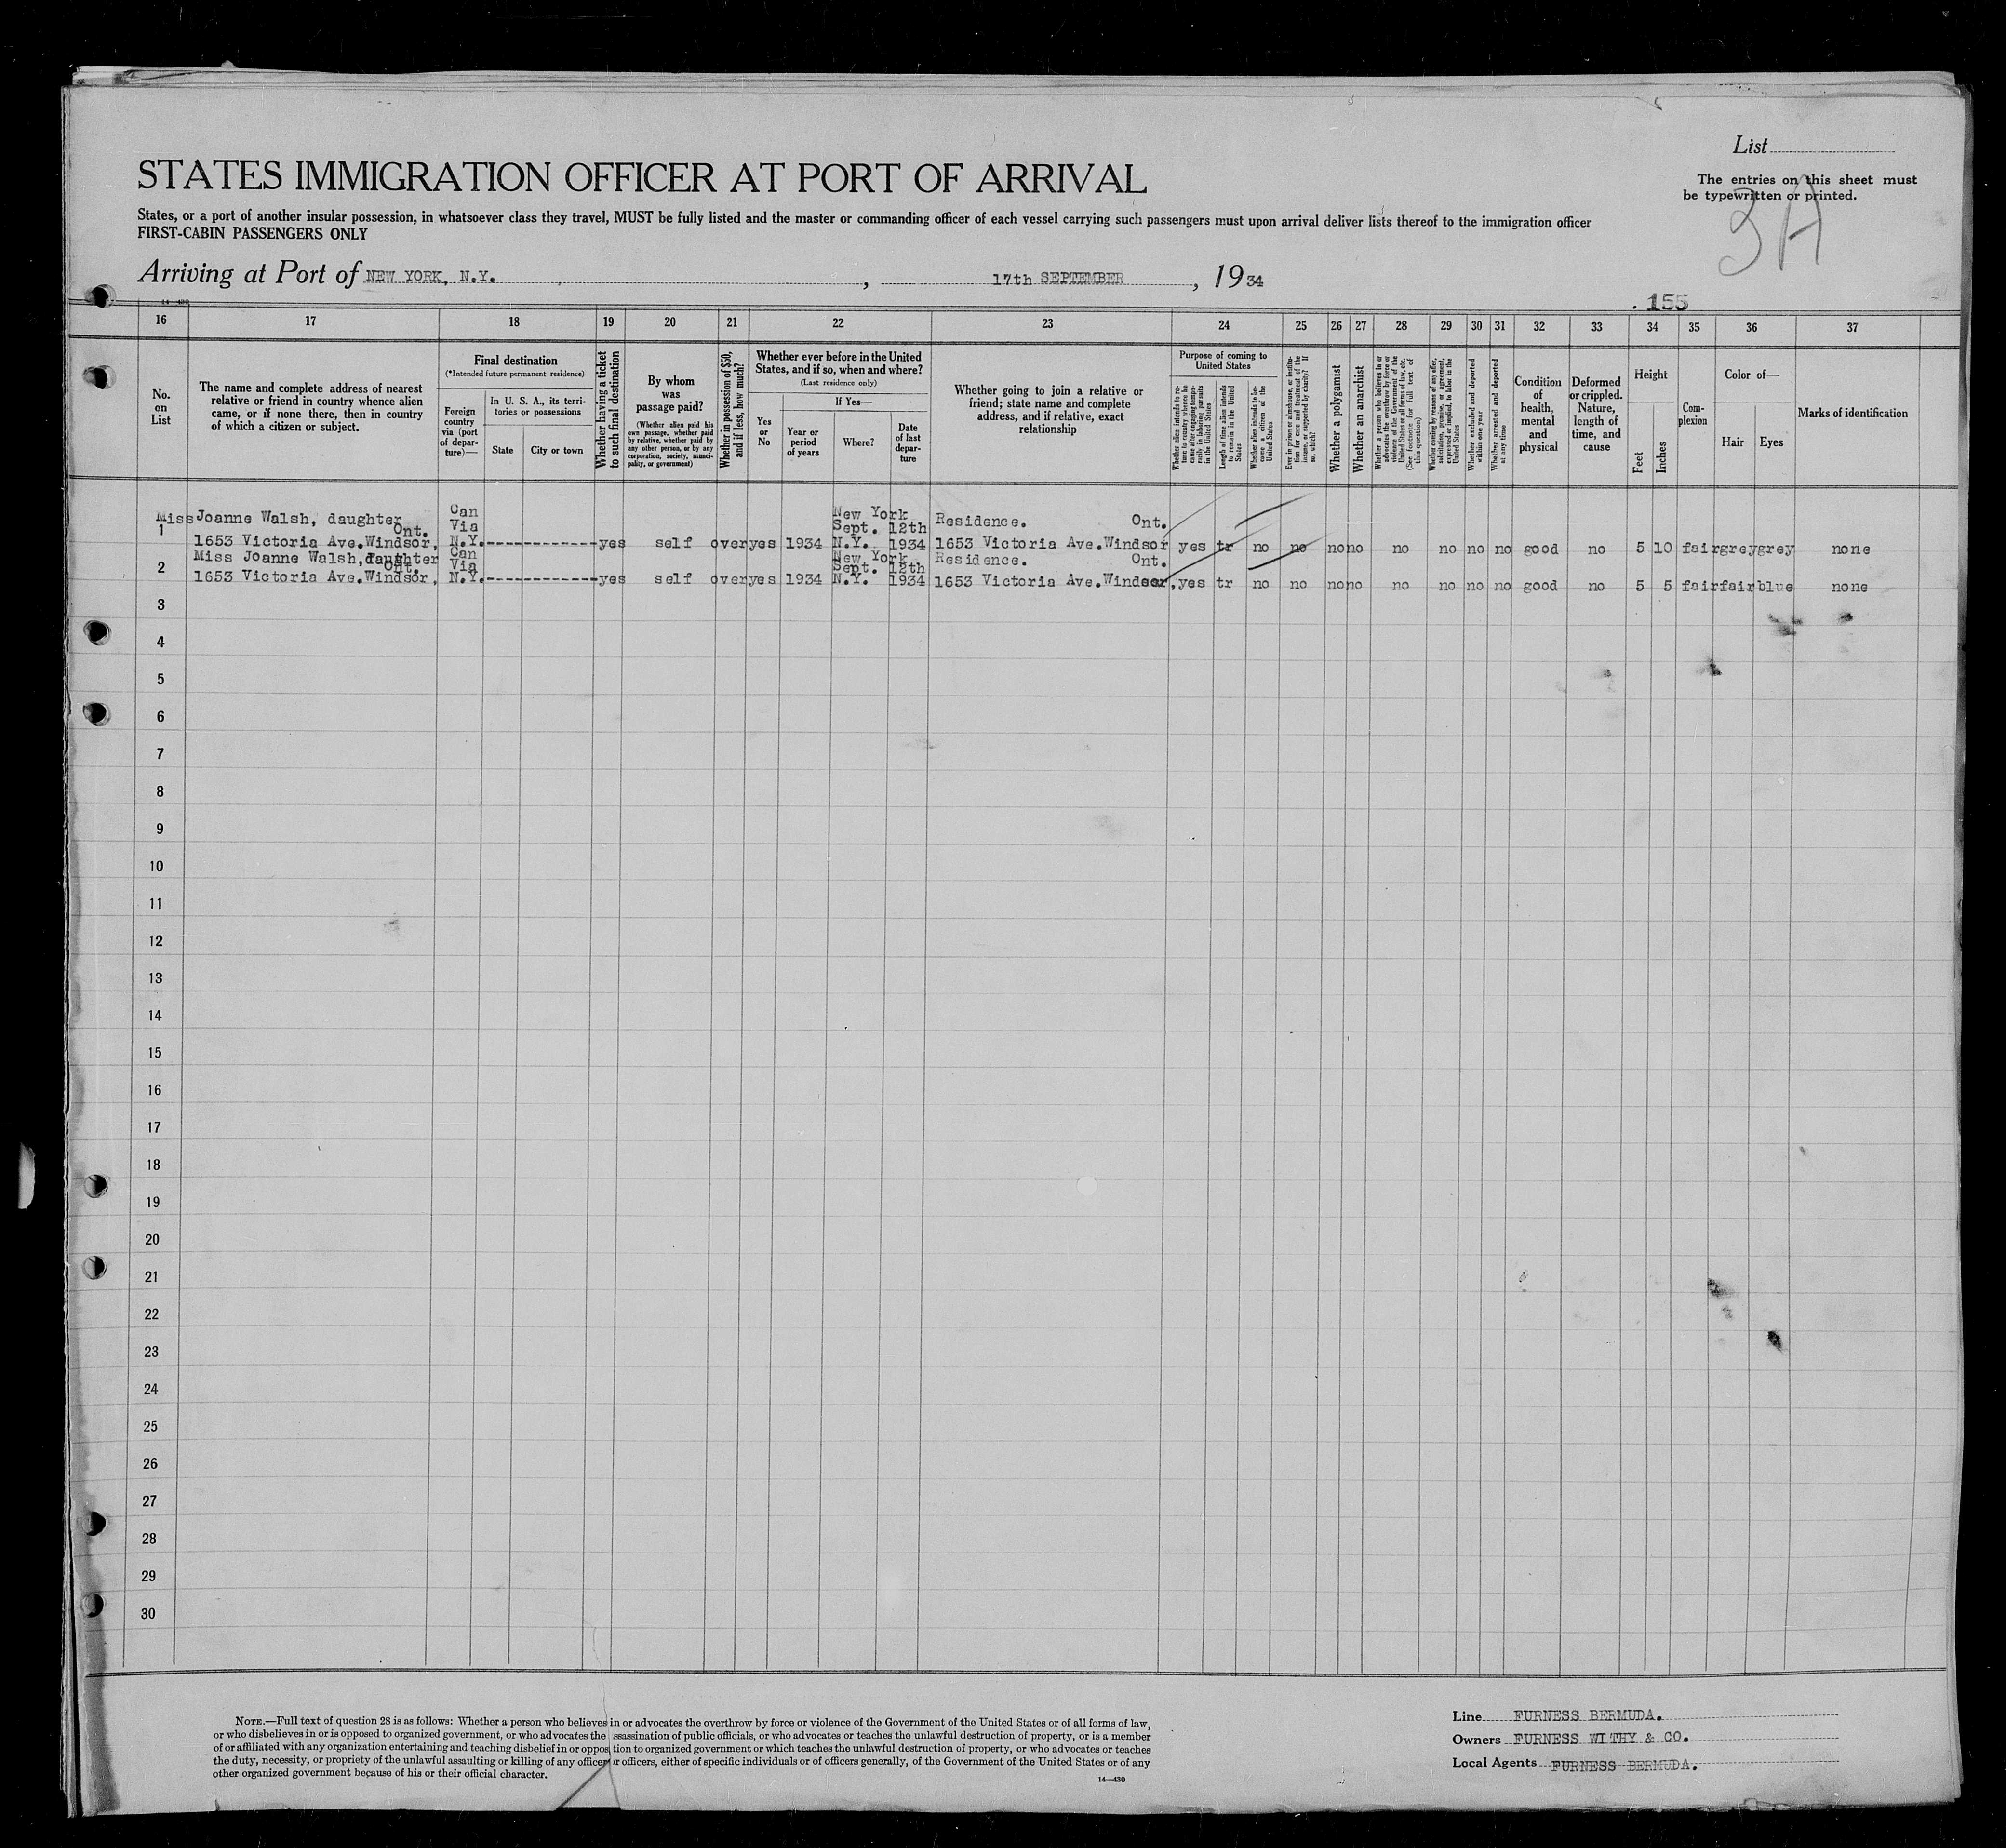 List
The entries on this sheet must
be typewritten or printed.
3A
STATES IMMIGRATION OFFICER AT PORT OF ARRIVAL
States, or a port of another insular possession, in whatsoever class they travel, MUST be fully listed and the master or commanding officer of each vessel carrying such passengers must upon arrival deliver lists thereof to the immigration officer
FIRST-CABIN PASSENGERS ONLY
Arriving at Port of NEW YORK, N.Y. , 17th SEPTEMBER , 1934
14-430
155
16 17 18 19 20 21 22 23 24 25 26 27 28 29 30 31 32 33 34 35 36 37
No. on List
The name and complete address of nearest relative or friend in country whence alien came, or if none there, then in country of which a citizen or subject.
Final destination
(*Intended future permanent residence)
Foreign country via (port of departure)—
In U. S. A., its territories or possessions
State
City or town
Whether having a ticket to such final destination
By whom was passage paid?
(Whether alien paid his own passage, whether paid by relative, whether paid by any other person, or by any corporation, society, municipality, or government)
Whether in possession of $50, and if less, how much?
Whether ever before in the United States, and if so, when and where?
(Last residence only)
Yes or No
If Yes—
Year or period of years
Where?
Date of last departure
Whether going to join a relative or friend; state name and complete address, and if relative, exact relationship
Purpose of coming to United States
Whether alien intends to return to country whence he came after engaging temporarily in laboring pursuits in the United States
Length of time alien intends to remain in the United States
Whether alien intends to become a citizen of the United States
Ever in prison or almshouse or institution for care and treatment of the insane, or supported by charity? If so, which?
Whether a polygamist
Whether an anarchist
Whether a person who believes in or advocates the overthrow by force or violence of the Government of the United States or all forms of law, etc. (See footnote for full text of this question)
Whether coming by reason of any offer, solicitation, promise, or agreement, expressed or implied, to labor in the United States
Whether excluded and deported within one year
Whether arrested and deported at any time
Condition of health, mental and physical
Deformed or crippled. Nature, length of time, and cause
Height
Feet
Inches
Complexion
Color of—
Hair
Eyes
Marks of identification
Miss Joanne Walsh, daughter Can New York Residence. Ont.
1 Ont. Via Sept. 12th
1653 Victoria Ave.Windsor, N.Y.--------------yes self over yes 1934 N.Y. 1934 1653 Victoria Ave.Windsor yes tr no no no no no no no no good no 5 10 fair grey grey none
Miss Joanne Walsh, daughter Can New York Residence. Ont.
2 Ont. Via Sept. 12th
1653 Victoria Ave.Windsor, N.Y.--------------yes self over yes 1934 N.Y. 1934 1653 Victoria Ave.Windsor, yes tr no no no no no no no no good no 5 5 fair fair blue none
3
4
5
6
7
8
9
10
11
12
13
14
15
16
17
18
19
20
21
22
23
24
25
26
27
28
29
30
NOTE.—Full text of question 28 is as follows: Whether a person who believes in or advocates the overthrow by force or violence of the Government of the United States or of all forms of law,
or who disbelieves in or is opposed to organized government, or who advocates the assassination of public officials, or who advocates or teaches the unlawful destruction of property, or is a member
of or affiliated with any organization entertaining and teaching disbelief in or opposition to organized government or which teaches the unlawful destruction of property, or who advocates or teaches
the duty, necessity, or propriety of the unlawful assaulting or killing of any officer or officers, either of specific individuals or of officers generally, of the Government of the United States or of any
other organized government because of his or their official character.
14—430
Line FURNESS BERMUDA.
Owners FURNESS WITHY & CO.
Local Agents FURNESS BERMUDA.